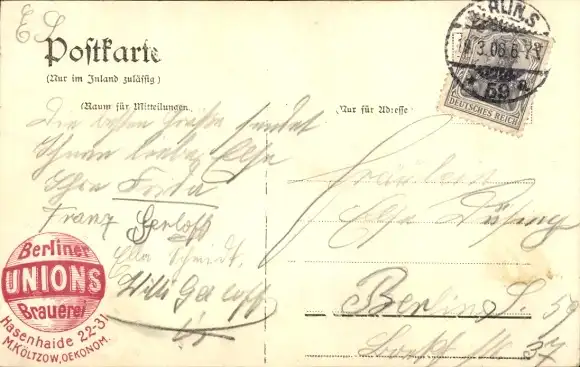 E S
BERLIN.S
3.06.6-7
* 59 a
DEUTSCHES REICH
Postkarte
(Nur im Inland zulässig)
(Raum für Mitteilungen)
(Nur für Adresse)
Die besten Grüße sendet
Ihnen liebe Else
Ihre Frida
Franz Gerloff
Ella Schmidt.
Willi Gerloff
Berliner
UNIONS
Brauerei
Hasenhaide 22-31
M. KÖLTZOW, OEKONOM.
Fräulein
Else
Berlin S. 59
37